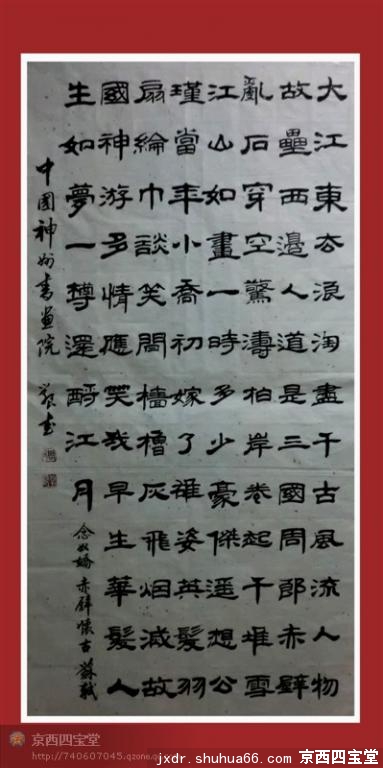 大江東去浪淘盡千古風流人物
故壘西邊人道是三國周郎赤壁
亂石穿空驚濤拍岸卷起千堆雪
江山如畫一時多少豪傑遥想公
瑾當年小喬初嫁了雄姿英髮羽
扇綸巾談笑間檣櫓灰飛烟滅故
國神游多情應笑我早生華髮人
生如夢一樽還酹江月
念奴嬌 赤壁懷古 蘇軾
中國神州書画院
京西四宝堂
http://740607045.qzone.qq.com
jxdr.shuhua66.com 京西四宝堂